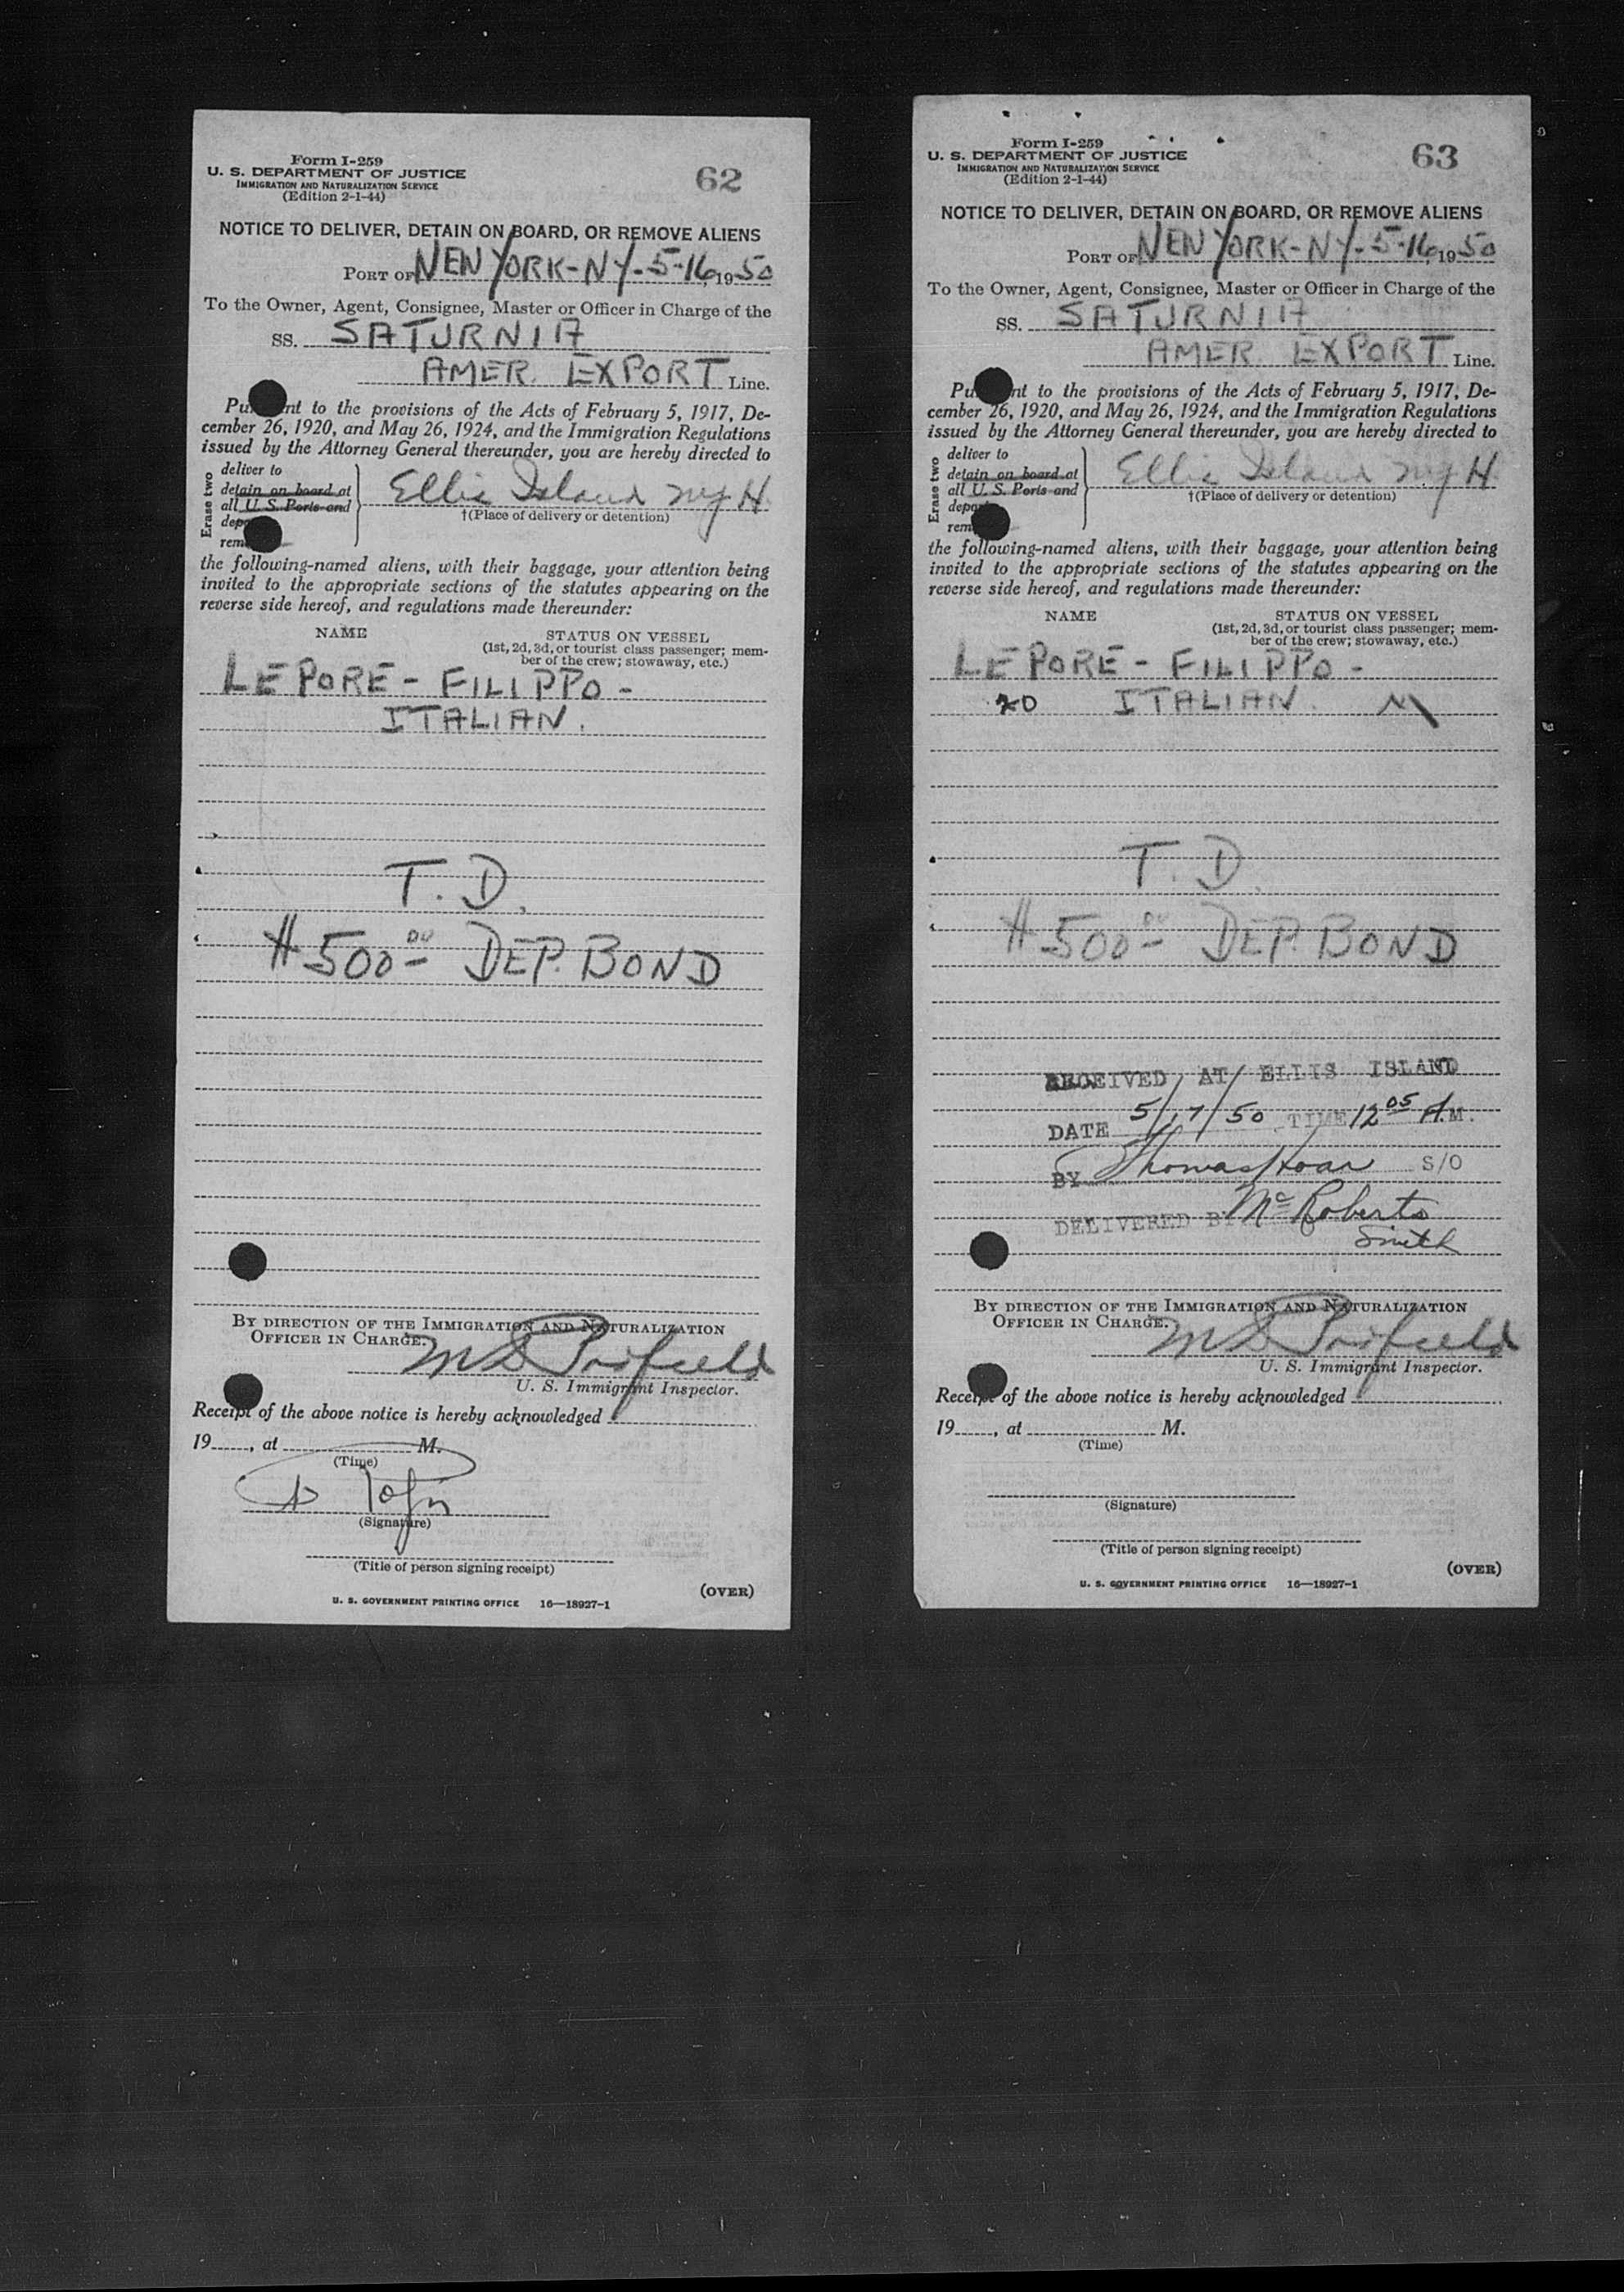 Form I-259
U. S. DEPARTMENT OF JUSTICE
IMMIGRATION AND NATURALIZATION SERVICE
(Edition 2-1-44)
62
NOTICE TO DELIVER, DETAIN ON BOARD, OR REMOVE ALIENS
PORT OF NEW YORK - NY. 5-16, 1950
To the Owner, Agent, Consignee, Master or Officer in Charge of the
SS. SATURNIA
AMER. EXPORT Line.
Pu nt to the provisions of the Acts of February 5, 1917, De-
cember 26, 1920, and May 26, 1924, and the Immigration Regulations
issued by the Attorney General thereunder, you are hereby directed to
Erase two
deliver to
detain on board at
all U. S. Ports and
dep
rem
Ellis Island NY H
†(Place of delivery or detention)
the following-named aliens, with their baggage, your attention being
invited to the appropriate sections of the statutes appearing on the
reverse side hereof, and regulations made thereunder:
NAME STATUS ON VESSEL
(1st, 2d, 3d, or tourist class passenger; mem-
ber of the crew; stowaway, etc.)
LEPORE - FILIPPO -
ITALIAN.
T. D.
$500.00 DEP. BOND
BY DIRECTION OF THE IMMIGRATION AND NATURALIZATION
OFFICER IN CHARGE.
U. S. Immigrant Inspector.
Receipt of the above notice is hereby acknowledged
19, at M.
(Time)
(Signature)
(Title of person signing receipt)
(OVER)
U. S. GOVERNMENT PRINTING OFFICE 16—18927-1
Form I-259
U. S. DEPARTMENT OF JUSTICE
IMMIGRATION AND NATURALIZATION SERVICE
(Edition 2-1-44)
63
NOTICE TO DELIVER, DETAIN ON BOARD, OR REMOVE ALIENS
PORT OF NEW YORK - NY. 5-16, 1950
To the Owner, Agent, Consignee, Master or Officer in Charge of the
SS. SATURNIA
AMER. EXPORT Line.
Pu nt to the provisions of the Acts of February 5, 1917, De-
cember 26, 1920, and May 26, 1924, and the Immigration Regulations
issued by the Attorney General thereunder, you are hereby directed to
Erase two
deliver to
detain on board at
all U. S. Ports and
depo
rem
Ellis Island NY H
†(Place of delivery or detention)
the following-named aliens, with their baggage, your attention being
invited to the appropriate sections of the statutes appearing on the
reverse side hereof, and regulations made thereunder:
NAME STATUS ON VESSEL
(1st, 2d, 3d, or tourist class passenger; mem-
ber of the crew; stowaway, etc.)
LEPORE - FILIPPO -
20 ITALIAN. M
T. D.
$500.00 DEP. BOND
RECEIVED AT ELLIS ISLAND
DATE 5/17/50 TIME 12 05 A.M.
BY Thomas Hoar S/O
DELIVERED BY McRoberts
Smith
BY DIRECTION OF THE IMMIGRATION AND NATURALIZATION
OFFICER IN CHARGE.
U. S. Immigrant Inspector.
Receipt of the above notice is hereby acknowledged
19, at M.
(Time)
(Signature)
(Title of person signing receipt)
(OVER)
U. S. GOVERNMENT PRINTING OFFICE 16—18927-1